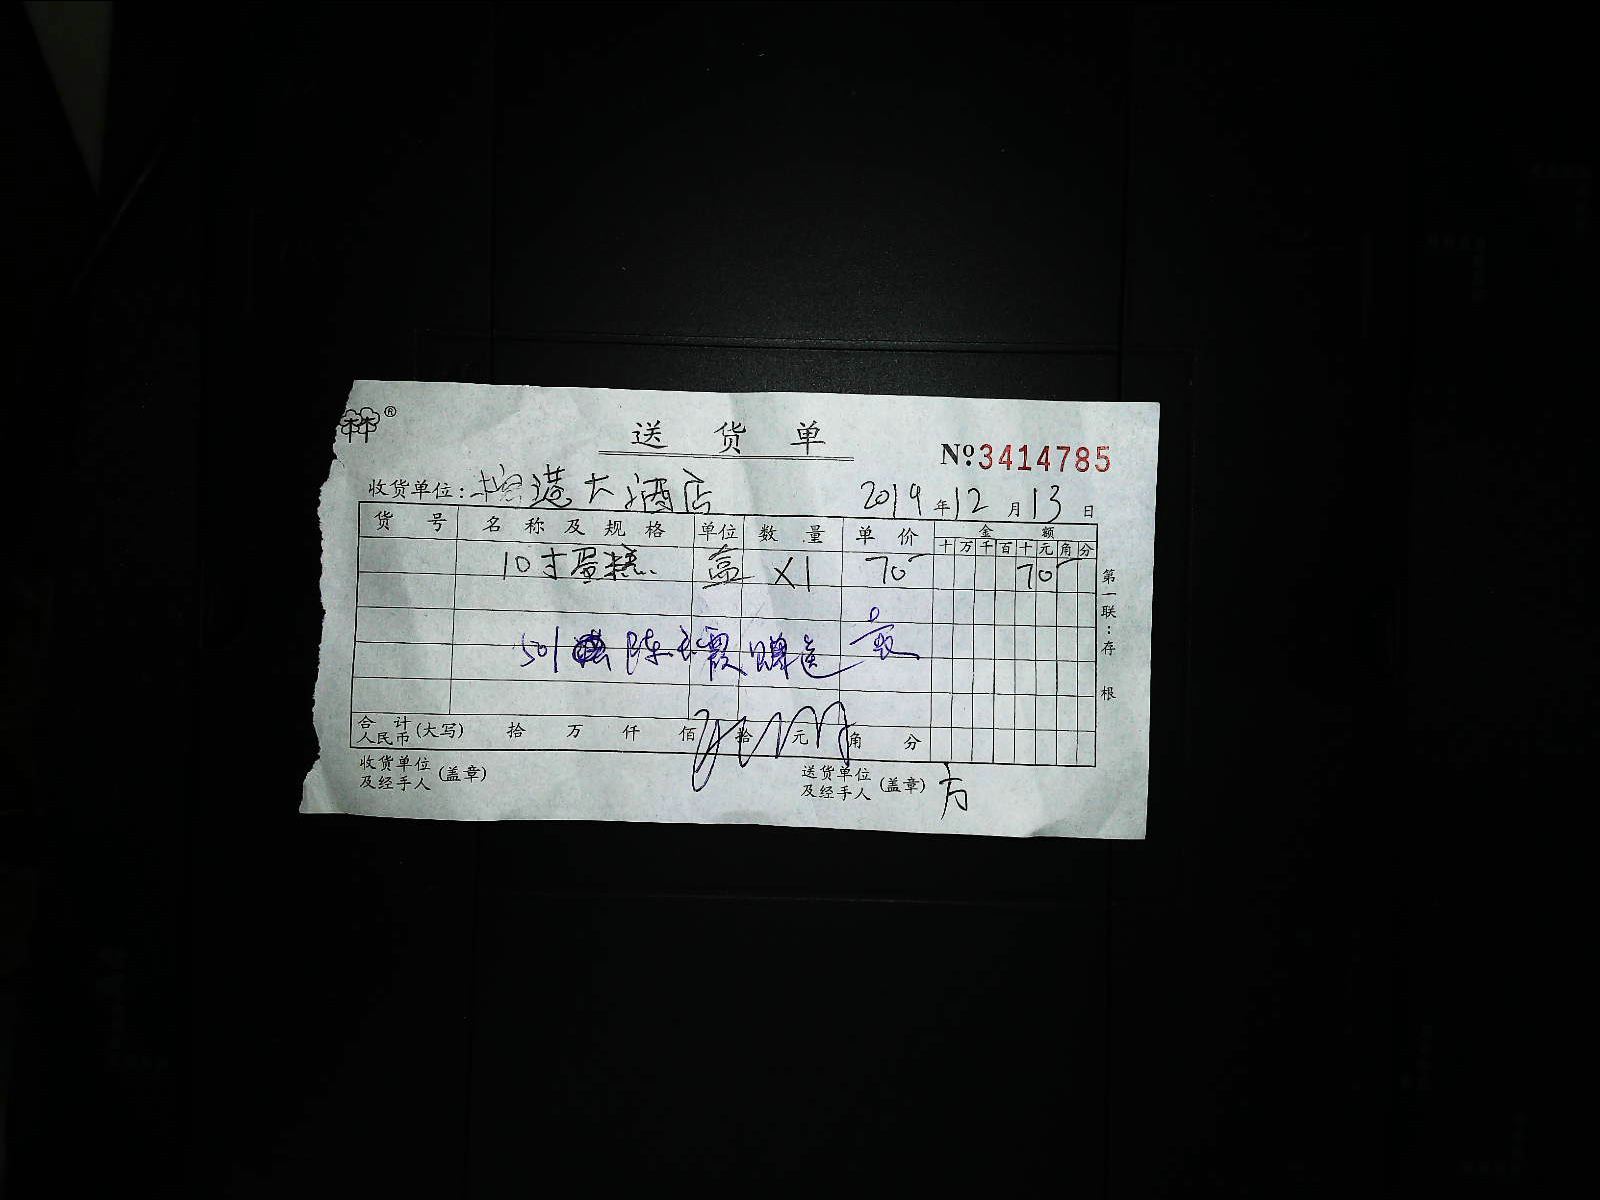 送货单
№3414785
收货单位：港大酒店 2019年12月13日
货号 名称及规格 单位 数量 单价 金额
十万千百十元角分
10寸蛋糕 盒 X1 70 70
501 陈霞赠送
合计人民币(大写) 拾 万 仟 佰 拾 元 角 分
收货单位及经手人(盖章) 送货单位及经手人(盖章) 方
第一联：存根